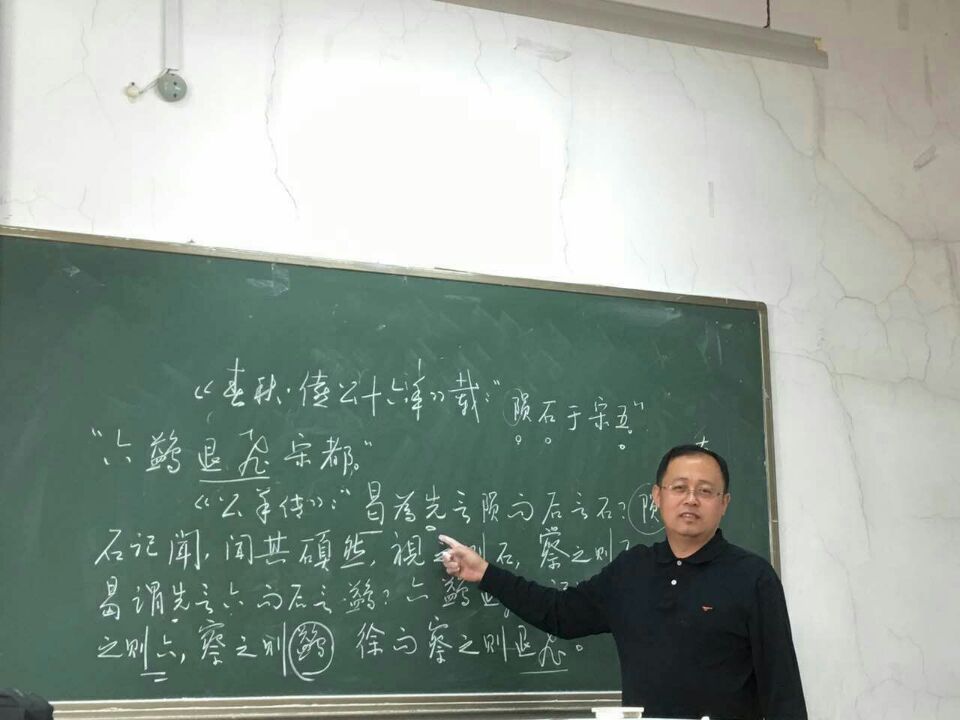 《春秋·僖公十六年》载：“陨石于宋五”
“六鷁退飞宋都。”
《公羊传》：“曷为先言陨而后言石？陨
石记闻，闻其磌然，視之则石，察之则
曷谓先言六而后言鷁？六鷁退
之则六，察之则鷁 徐而察之则退飞。